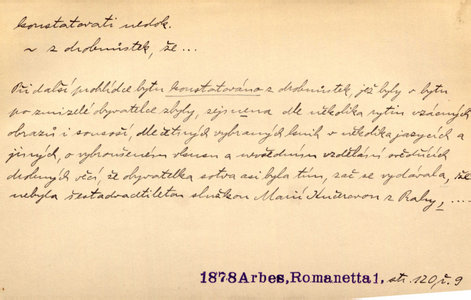 konstatovati nedok.
~ z drobnůstek, že ...
Při další prohlídce bytu konstatováno z drobnůstek, jež byly v bytu
po zmizelé obyvatelce zbyly, zejména dle několika rytin vzácných
obrazů i sousoší, dle četných vybraných knih v několika jazycích a
jiných, o vybroušeném vkusu a nevšedním vzdělání svědčících
drobných věcí, že obyvatelka sotva asi byla tím, zač se vydávala, že
nebyla šestadvacítiletou služkou Marií Kučerovou z Prahy, ....
1878 Arbes, Romanetta 1, str. 120, ř. 9